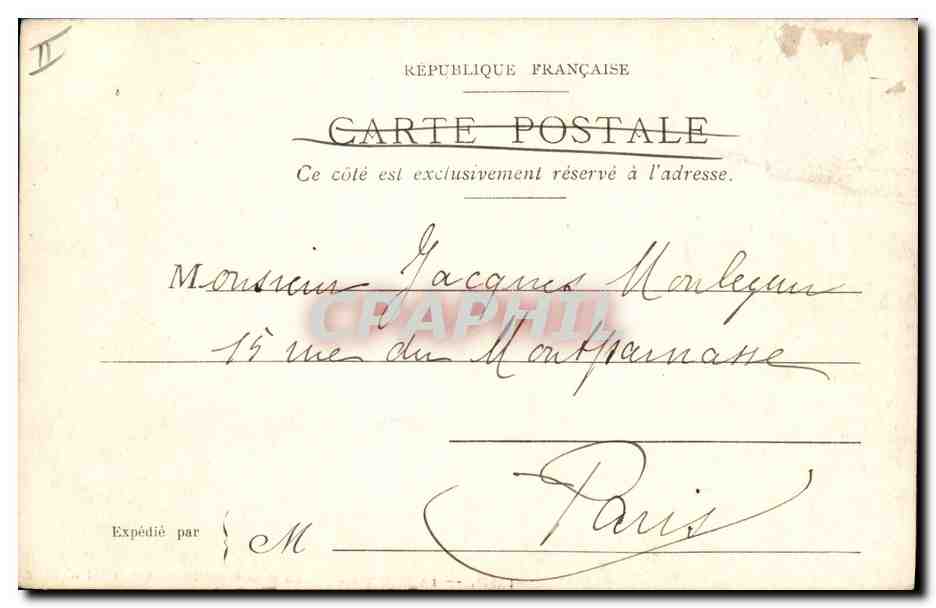 II
RÉPUBLIQUE FRANÇAISE
CARTE POSTALE
Ce côté est exclusivement réservé à l'adresse.
Monsieur Jacques
CPAPHIL
15 rue du Montparnasse
Paris
Expédié par M